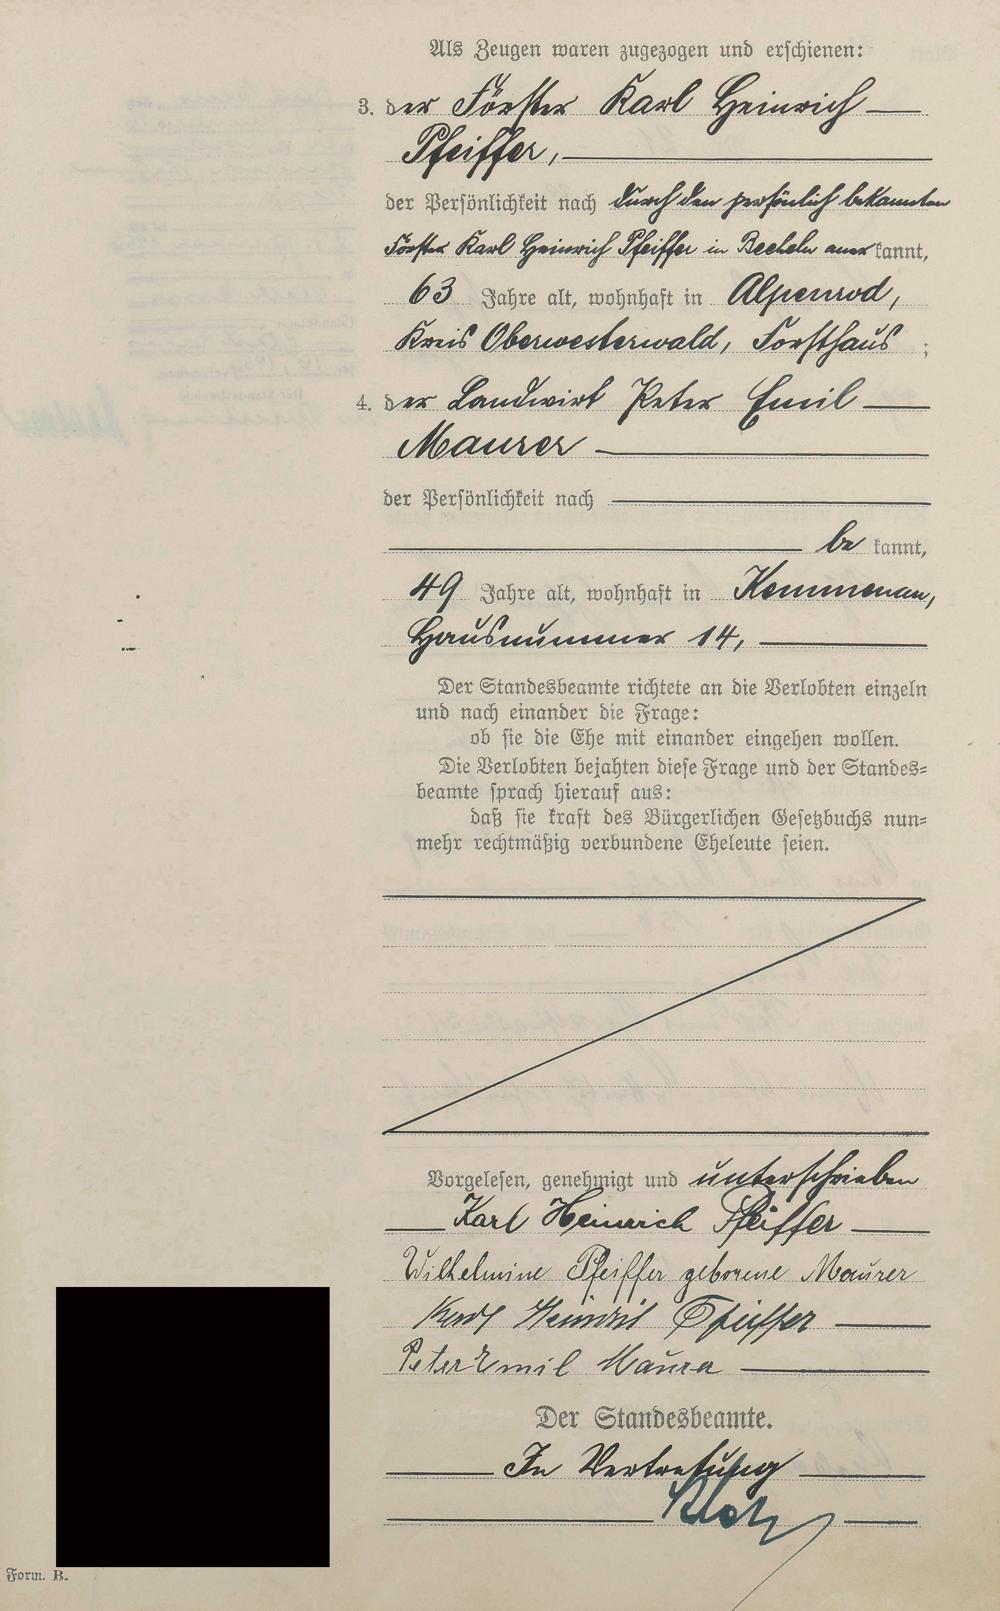 Als Zeugen waren zugezogen und erschienen:
3. der Förster Karl Heinrich
Pfeiffer,
der Persönlichkeit nach durch den persönlich bekannten
Förster Karl Heinrich Pfeiffer in Becheln aner kannt,
63 Jahre alt, wohnhaft in Alpenrod,
Kreis Oberwesterwald, Forsthaus ;
4. der Landwirt Peter Emil
Maurer
der Persönlichkeit nach
be kannt,
49 Jahre alt, wohnhaft in Kemmenau,
Hausnummer 14,
Der Standesbeamte richtete an die Verlobten einzeln
und nach einander die Frage:
ob sie die Ehe mit einander eingehen wollen.
Die Verlobten bejahten diese Frage und der Standes-
beamte sprach hierauf aus:
daß sie kraft des Bürgerlichen Gesetzbuchs nun-
mehr rechtmäßig verbundene Eheleute seien.
Vorgelesen, genehmigt und unterschrieben
Karl Heinrich Pfeiffer
Wilhelmine Pfeiffer geborene Maurer
Karl Heinrich Pfeiffer
Peter Emil Maurer
Der Standesbeamte.
In Vertretung
Form. B.